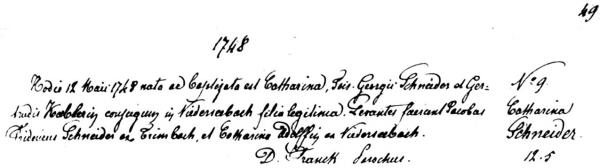 49
1748
Hodie 12 Maii 1748 nata ac baptizata est Catharina, Jois. Georgii Schneider et Ger-
trudis conjugum in Niederseebach filia legitima. Levantes fuerunt Jacobus
Schneider ex Trimbach, et Catharina ex Niederseebach.
D. Franck Parochus.
No 9.
Catharina
Schneider
12.5